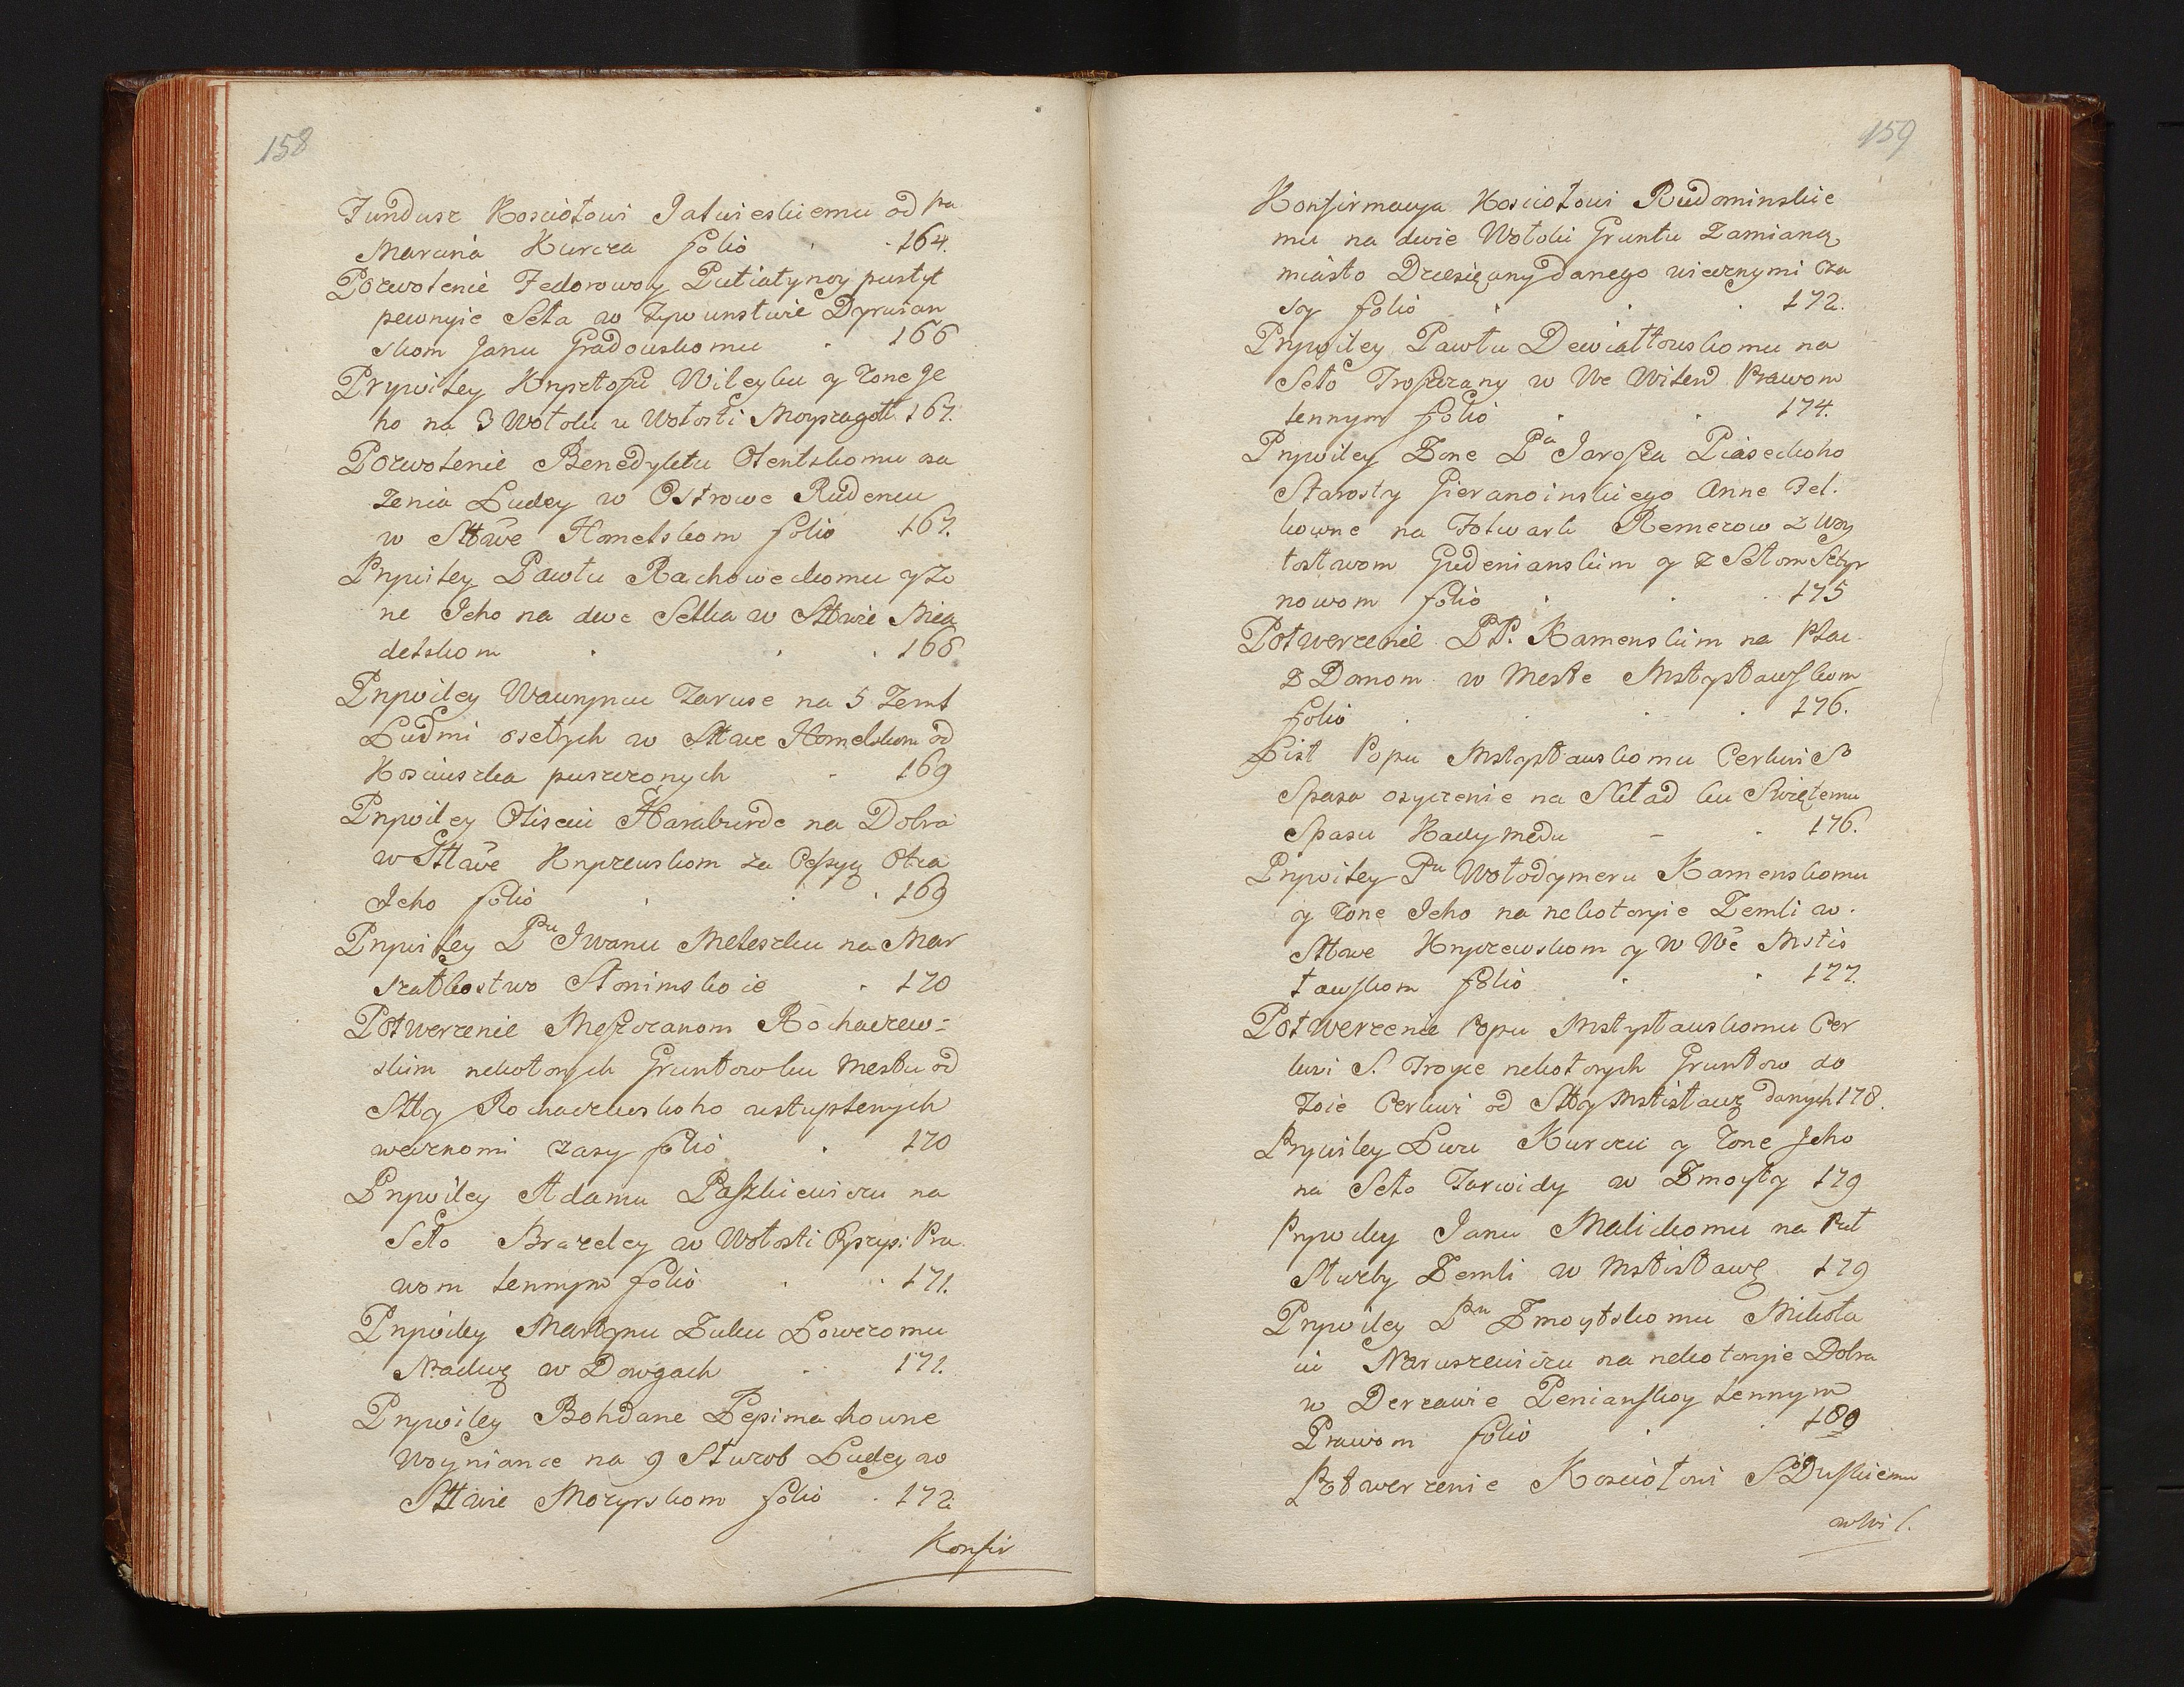 158
Fundusz Kosciołowi Jatwieskiemu od Pa
Marcina Kurcza folio 164.
Pozwolenie Fedorowoy Putiatynoy pustyt
pewnyie Seła w Tywunstwie Dyrwian
skom Janu Gradouskomu 166
Prywiley Krysztofu Wileyku y Zone Je
ho na 3 Wołoki u Wołosti Moyszagoł 167.
Pozwolenie Benedyktu Olentskomu osa
zenia Ludey w Ostrowe Rudencu
w Sttwe Homelskom folio 167.
Prywiley Pawłu Rachoweckomu y Zo
ne Jeho na dwe Selca w Sttwie Mia
delskom 168
Prywiley Wawryncu Zaruse na 5 Zeml
Ludmi osełych w Sttwe Homelskom od
Kosciuszka puszczonych 169
Prywiley Olisceiu Haraburde na Dobra
w Sttwe Kryczewskom za Cessyą Otca
Jeho folio 169
Prywiley Pnu Iwanu Meleszku na Mar
szałkostwo Słonimskoie 170
Potwerzenie Meszczanom Rohaczew-
skim nekotorych Gruntow ku Mestu od
Stty Rohaczewskoho ustuplenych
wecznomi czasy folio 170
Prywiley Adamu Paszkiewiczu na
Seło Brazeley w Wołosti Pyszyp: Pra
wom lennym folio 171.
Prywiley Martynu Zuku Łowczomu
Nadwę w Dowgach 171.
Prywiley Bohdane Łepimachowne
Woyniance na 9 Służob Ludey w
Sttwie Mozyrskom folio 172.
Konfir
159
Konfirmacya Kosciołowi Rudominskie
mu na dwie Włoki Gruntu Zamianą
miasto Dziesięciny danego wiecznymi cza
sy folio 172.
Prywiley Pawłu Dewiałtouskomu na
Seło Troszczany w We Wilen Prawom
lennym folio 174.
Prywiley Zone Pa Jarosza Piaseckoho
Starosty Gieranoinskiego Anne Fel.
kowne na Folwark Remerow z Woy
tostwom Gudenianskim y z Sełom Sckyr
nowom folio 175
Potwerzenie PP. Kamenskim na Plac
z Domom w Meste Mstysławskom
folio 176.
List Popu Mstysłauskomu Cerkwi S°
Spasa osyczenie na Skład ku Swiętemu
Spasu Kady Medu 176.
Prywiley Pu Wołodymeru Kamenskomu
y Zone Jeho na nekotoryie Zemli w.
Sttwe Kryczewskom y w We Mstis
ławskom folio 177.
Potwerzenie Popu Mstysłauskomu Cer
kwi S. Troyce nekotorych Gruntow do
Toie Cerkwi od Stty Mstisławę danych 178.
Prywiley Lwu Kurczu y Zone Jeho
na Seło Tarwidy w Zmoyty 179
Prywiley Janu Malickomu na Puł
Służby Zemli w Mstisławę 179
Prywiley Pnu Zmoytskomu Mikoła
iu Naruszewiczu na nekotoryie Dobra
w Derzawie Penianskoy lennym
Prawom folio 180
Potwerzenie Kosciołowi S°Duskiemu
w Wil.